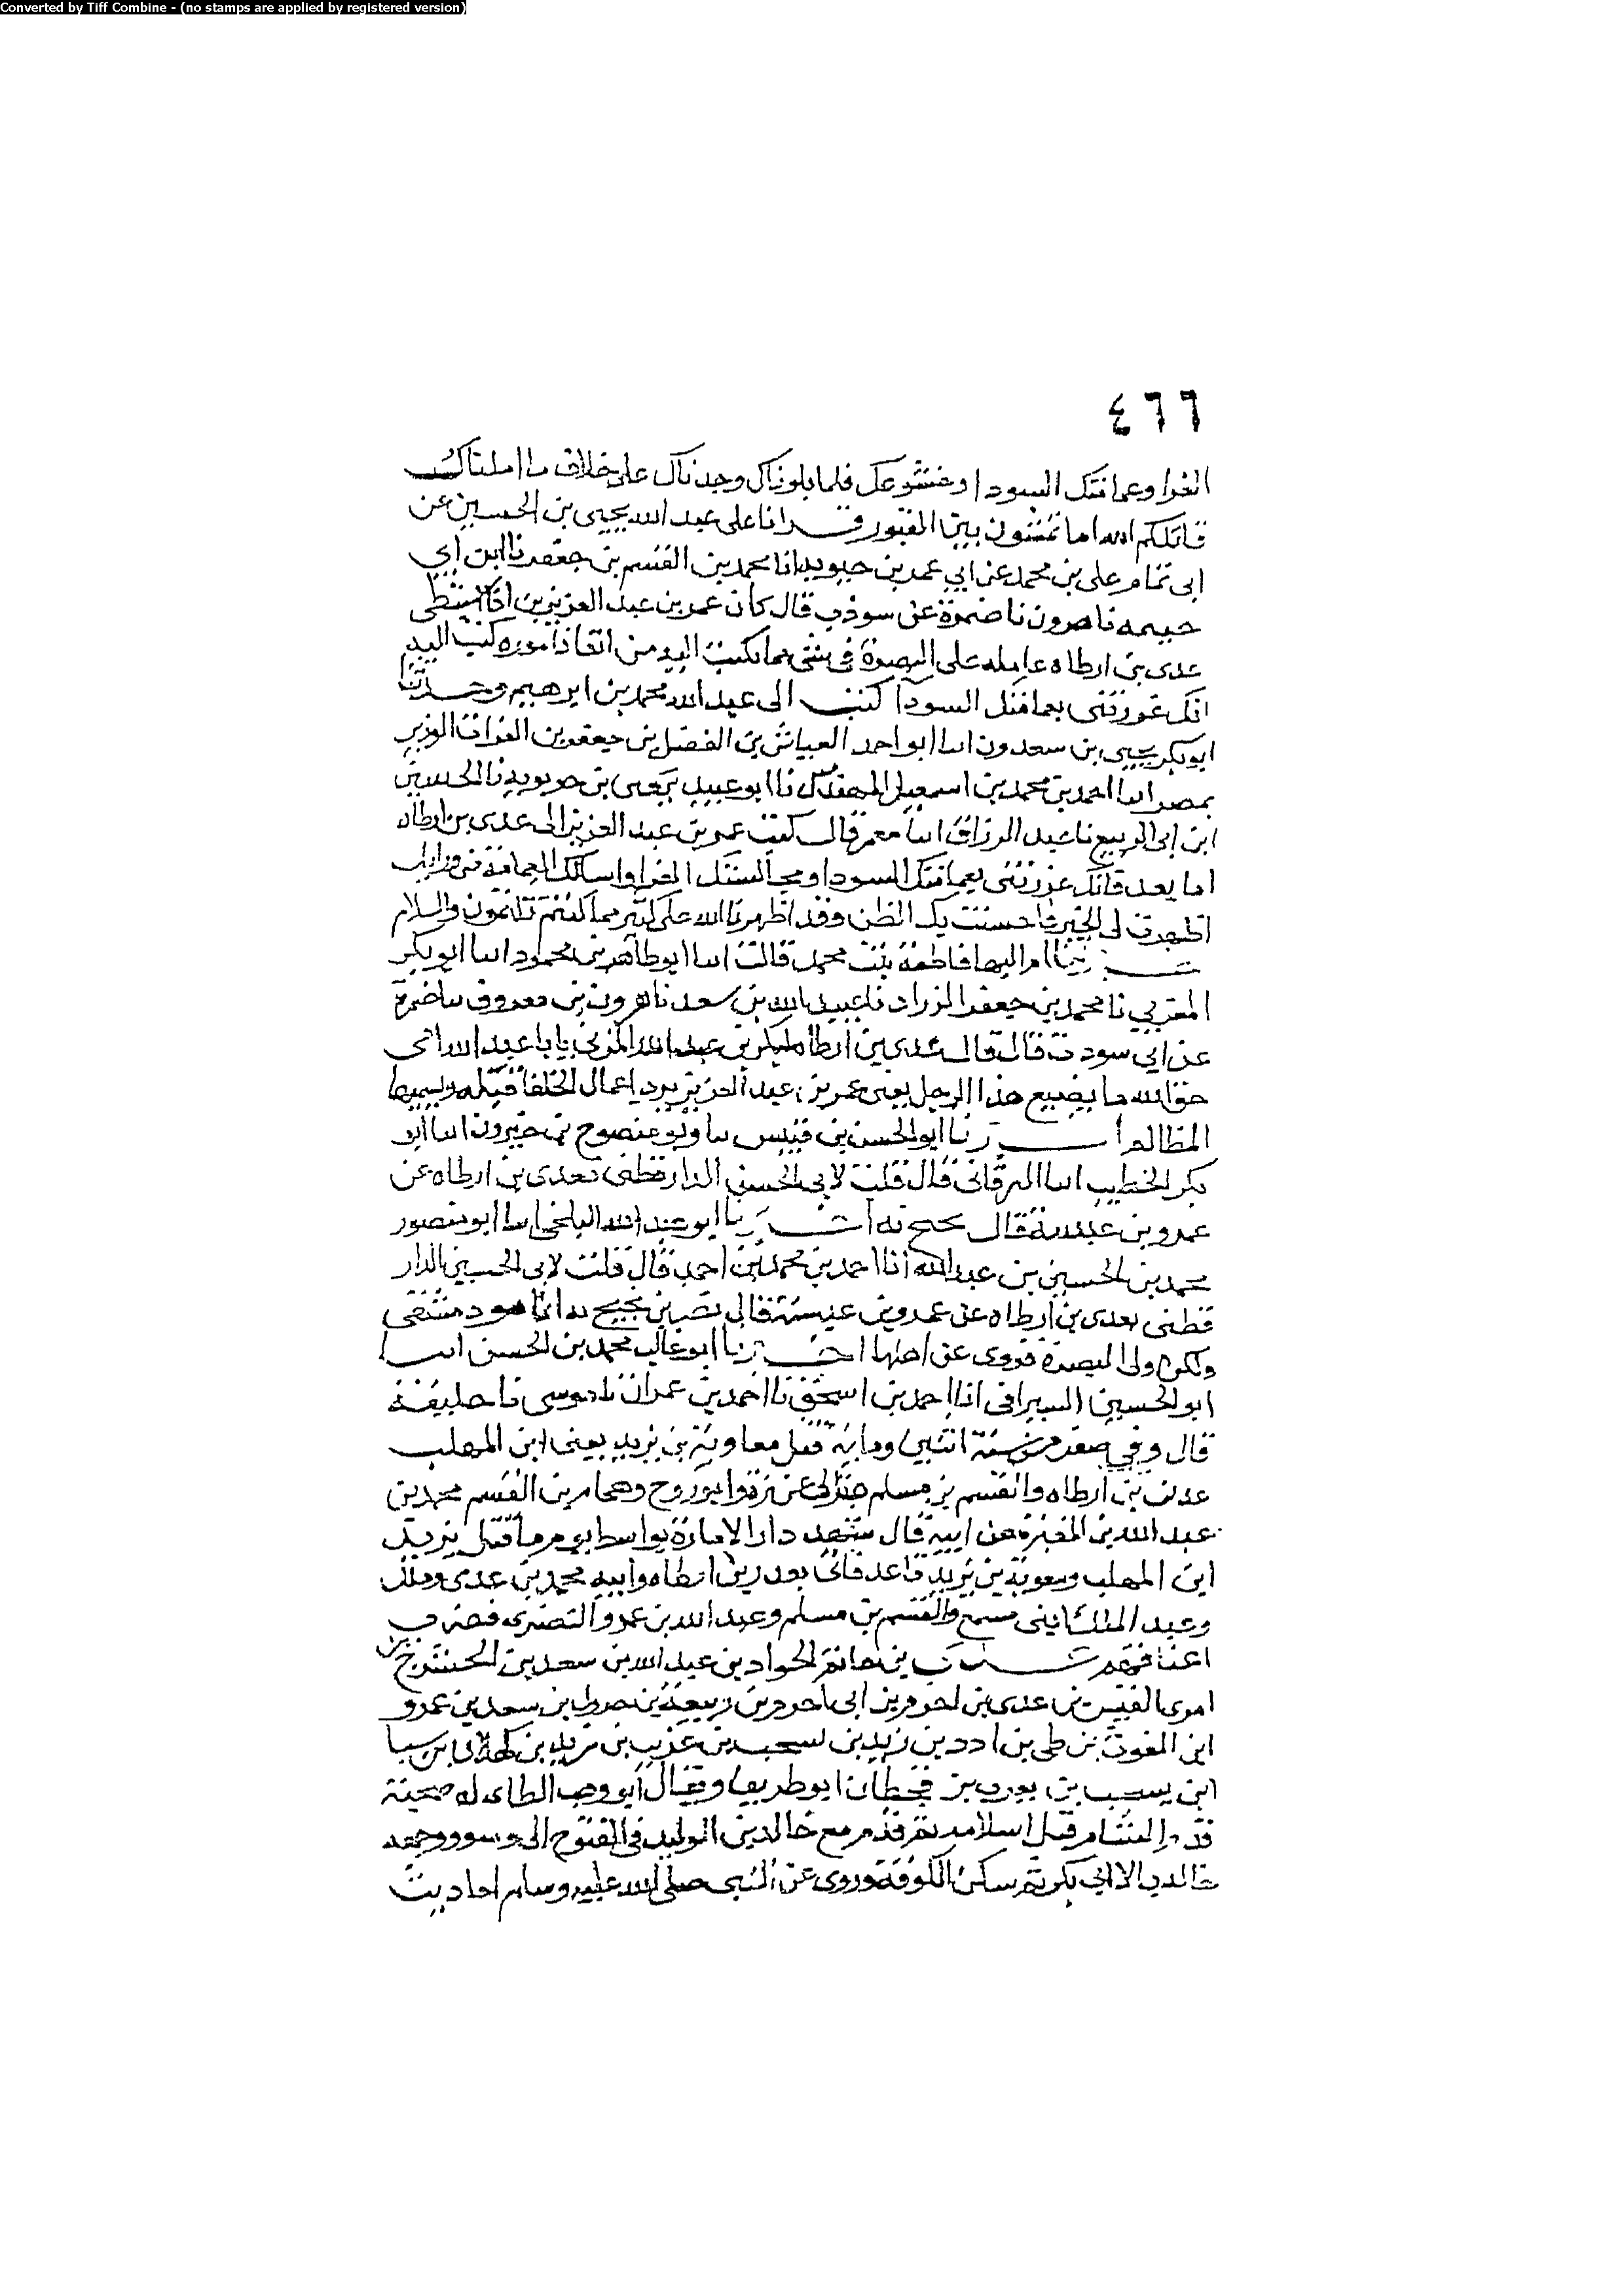 Converted by Tiff Combine - (no stamps are applied by registered version)
٤٦٦
القرا وعمامتك السودا وخشوعك فلما بلوناك وجدناك على خلاف ما املناك
قاتلكم الله اما تمشون بين القبور قرانا على عبد الله يحيى بن الحسين عن
ابى تمام على بن محمد عن ابي عمر بن حيويه انا محمد بن القسم بن جعفر نا ابن ابي
خيثمه نا هرون نا ضمرة عن سوذب قال كان عمر بن عبد العزيز
عدى بن ارطاه عامله على البصرة فى شى مما يكتب اليه من انفاذ اموره كتب اليه
انك غررتنى بعمامتك السودا كتب الى عبد الله محمد بن ابرهيم وحدثنا
ابو بكر يحيى بن سعدون انا ابو احمد العباس بن الفضل بن جعفر بن الفرات الوزير
بمصر انا احمد بن محمد بن اسمعيل المهندس نا ابو عبيد بن حربويه نا الحسين
ابن ابى الربيع نا عبد الرزاق انا معمر قال كتب عمر بن عبد العزيز الى عدى بن ارطاه
اما بعد فانك غررتنى بعمامتك السودا ومجالستك القرا وارسالك العمامة من ورايك
اظهرت لى الخير فاحسنت بك الظن وقد اظهرنا الله على كثير مما كنتم تكتمون والسلام
اخبرتنا ام البها فاطمة بنت محمد قالت انا ابو طاهر بن محمود انا ابو بكر
المقري نا محمد بن جعفر الزراد نا عبيد الله بن سعد نا هرون بن معروف نا ضمرة
عن ابى سودب قال قال عدى بن ارطاه لبكر بن عبد الله المزنى يابا عبد الله اتى
حق الله ما يصنع هذا الرجل يعنى عمر بن عبد العزيز يرد اعمال الخلفا قبله ويسميها
المظالم اخبرنا ابو الحسن بن قبيس نا وابو منصور بن خيرون انا ابو
بكر الخطيب انا البرقانى قال قلت لابى الحسن الدارقطنى فعدى بن ارطاه عن
عمرو بن عبسة فقال يحتج به اخبرنا ابو عبد الله البلخى انا ابو منصور
محمد بن الحسين بن عبد الله انا احمد بن محمد بن احمد قال قلت لابى الحسين الدار
قطنى بعدى بن ارطاه عن عمرو بن عبسة فقال
ولكن ولى البصرة فروى عن اهلها اخبرنا ابو غالب محمد بن الحسن انا
ابو الحسين السيرافى انا احمد بن اسحق نا احمد بن عمران نا موسى نا خليفة
قال وفي صفر من سنة اثنين ومايه قتل معاوية بن يزيد يعنى ابن المهلب
عدى بن ارطاه والقسم بن مسلم وابو روح وهجام بن القسم محمد بن
عبد الله بن المغيرة عن ابيه قال شهدت دار الامارة بواسط يوم جا قتل يزيد
ابن المهلب ومعوية بن يزيد قاعد فاتى بعدى بن ارطاه وابنه محمد بن عدى ومالك
وعبد الملك ابنى مسمع والقسم بن مسلم وعبد الله بن عمرو النصرى فضرب
اعناقهم بن حاتم الجواد بن عبد الله بن سعد بن الحشرج بن
امرى القيس بن عدى بن اخزم بن ابى اخزم بن ربيعة بن جرول بن سعد بن عمرو
ابن الغوث بن طى بن ادد بن زيد بن يشجب بن عريب بن زيد بن كهلان بن سبا
ابن يشجب بن يعرب بن قحطان ابو طريف ويقال ابو وهب الطاى له صحبة
قدم الشام قبل اسلامه ثم قدم مع خالد بن الوليد فى الفتوح الى وسوى ووجهه
خالد بالا الى ابى بكر ثم سكن الكوفة وروى عن النبى صلى الله عليه وسلم احاديث